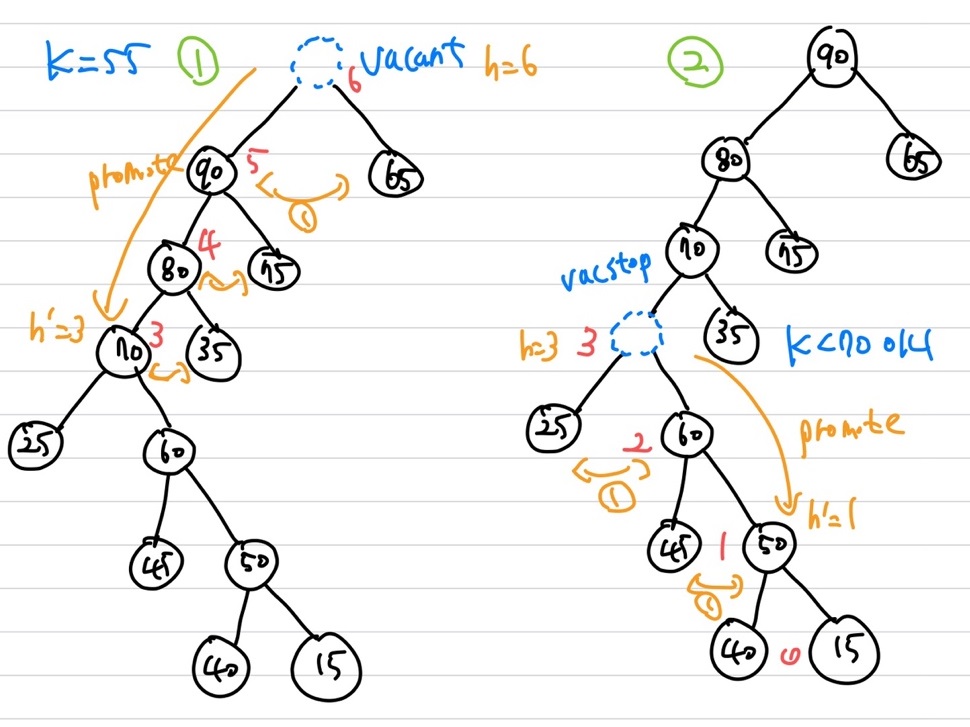 K=55 ① vacant h=6
6
promote
90 5 65
①
80 4 75
h'=3
70 3 35
25 60
45 50
40 15
② 90
80 65
70 75
vacstop
h=3 3 35 K<70 o14
25 2 60 promote
①
h'=1
45 1 50
①
40 0 15